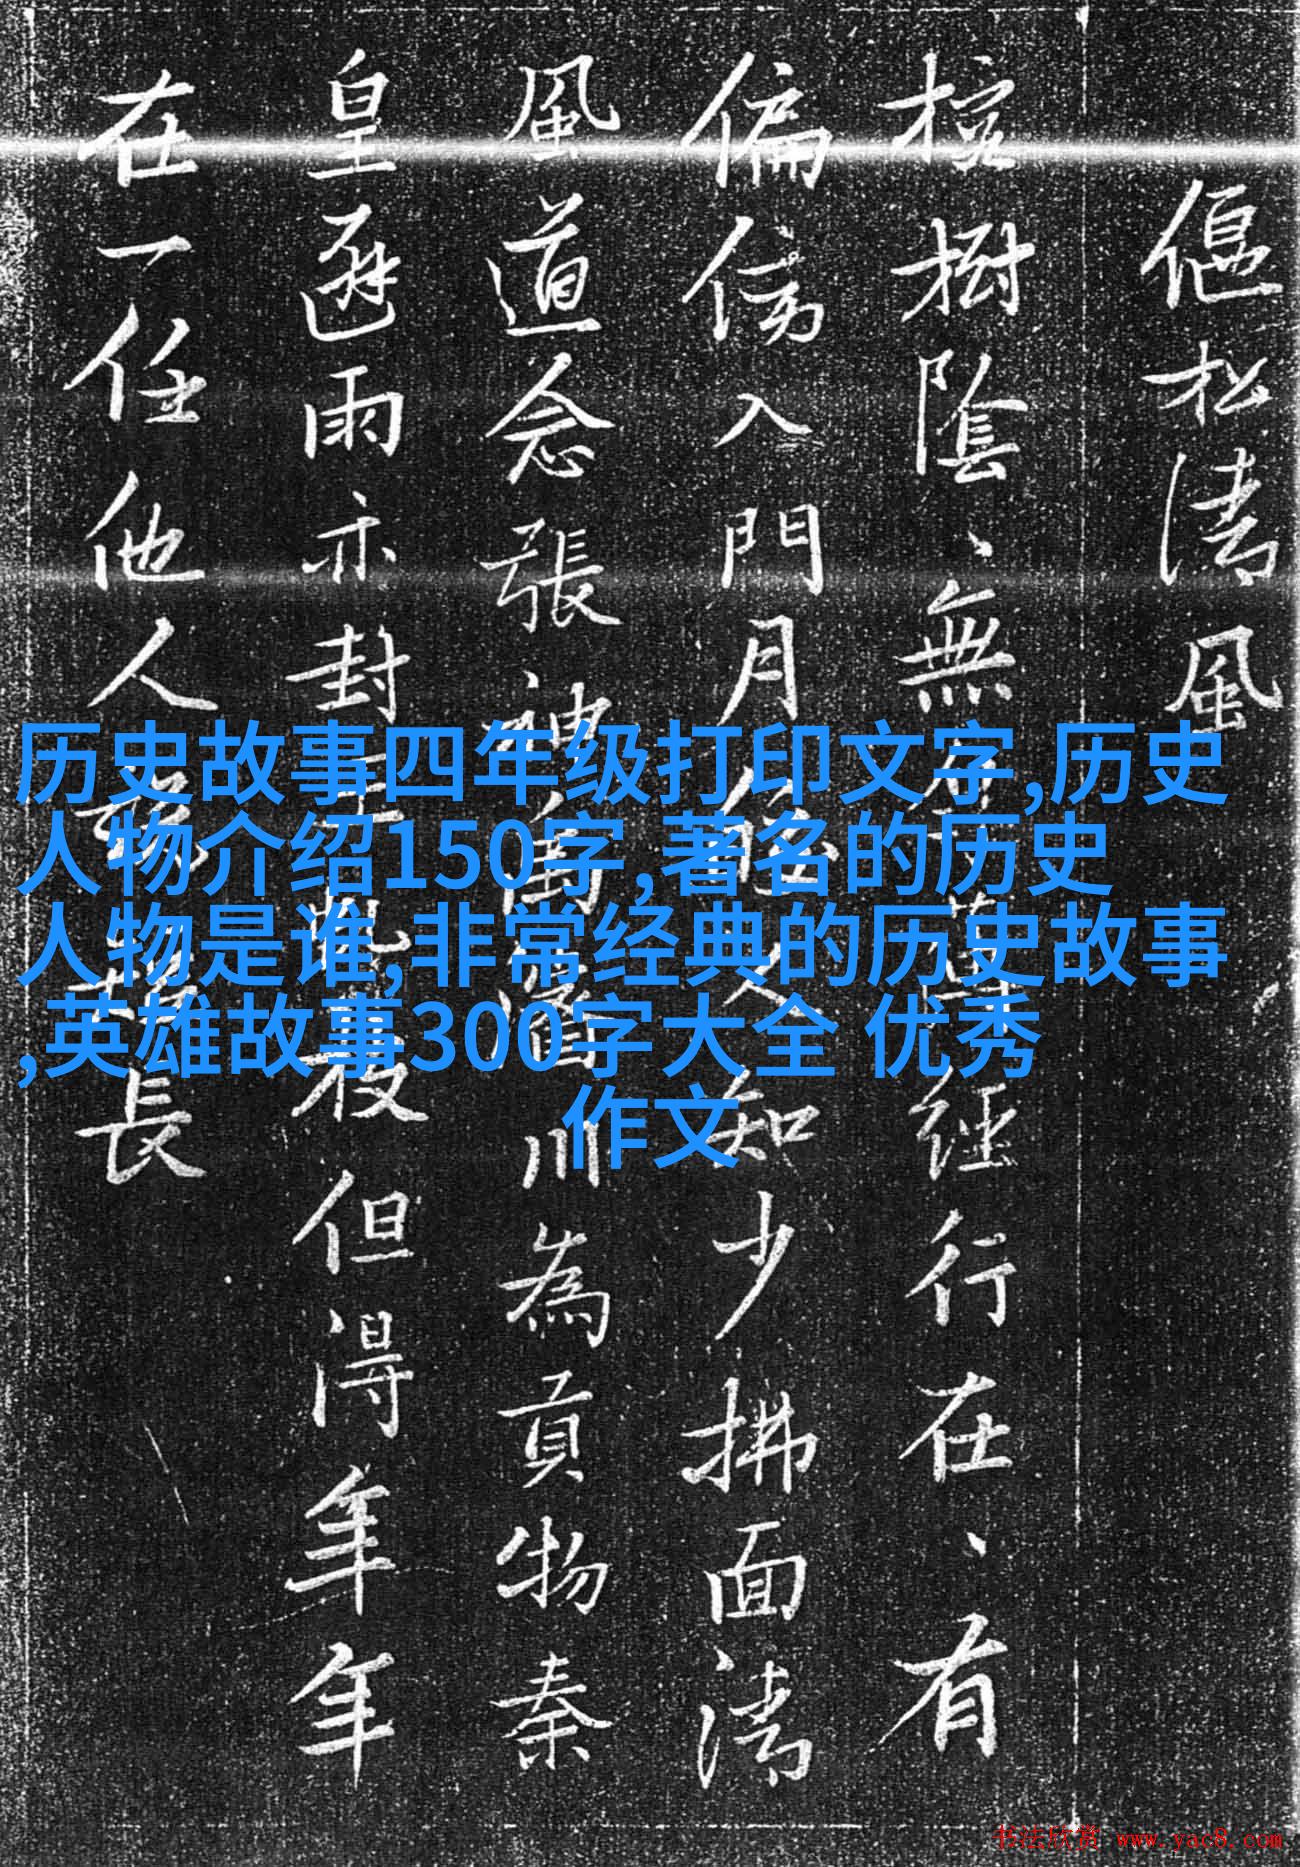 偃松清風
樹陰、無經行在、有
偏傍入門月知少拂面清
風道念張神川為貢物秦
皇避雨亦封但得年年
在一任他人長
历史故事四年级打印文字,历史
人物介绍150字,著名的历史
人物是谁,非常经典的历史故事
,英雄故事300字大全 优秀
作文
书法欣赏 www.yac8.com